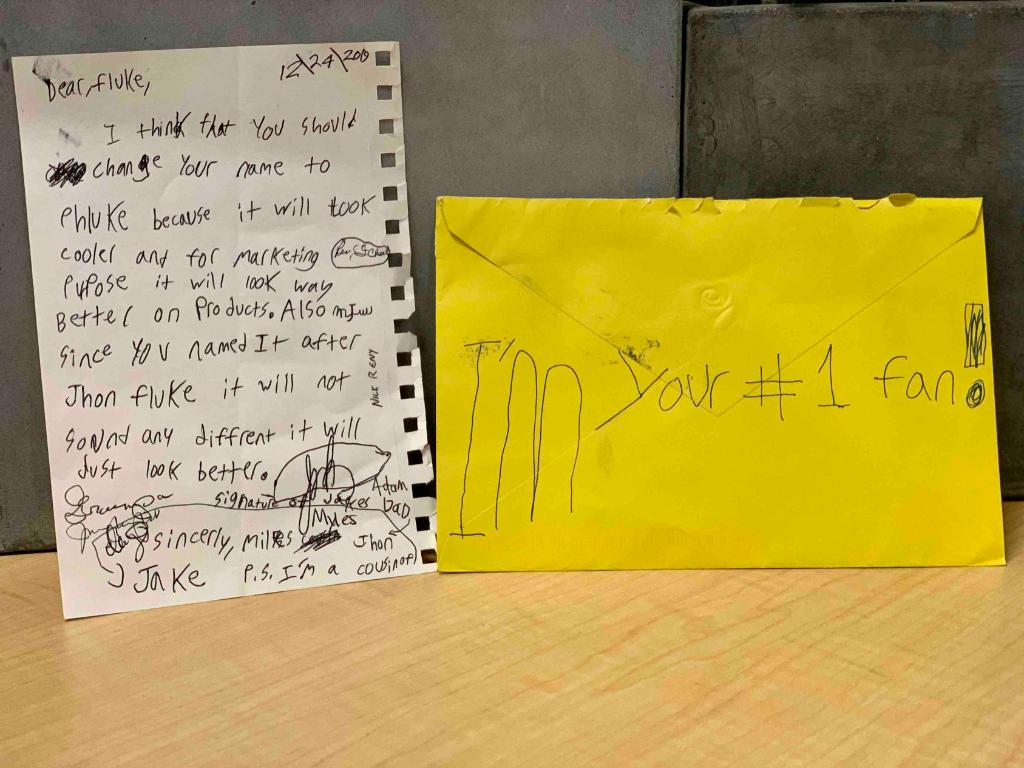 12\24\2019
Dear, fluke,
I think that You should
change Your name to
Phluke because it will look
cooler and for marketing
pupose it will look way
Better on Products. Also
since YOU named It after
Jhon fluke it will not
sound any diffrent it will
Just look better.
NICK RENY
signature of Jakes Dad
Adam
Myles
sincerly, miles
Jake
P.S. I'm a cousin of
Jhon
I'm Your #1 fan!